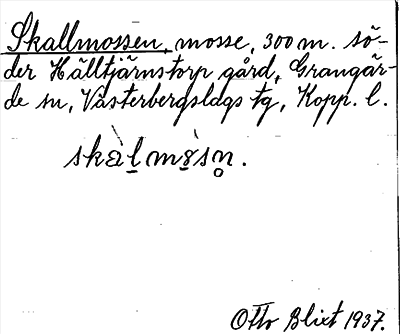 Skallmossen, mosse, 300 m. sö-
der Hälltjärnstorp gård, Grangär-
de sn, Västerbergslags tg, Kopp. l.
skàl̲mò̲sn̥.
Otto Blixt 1937.